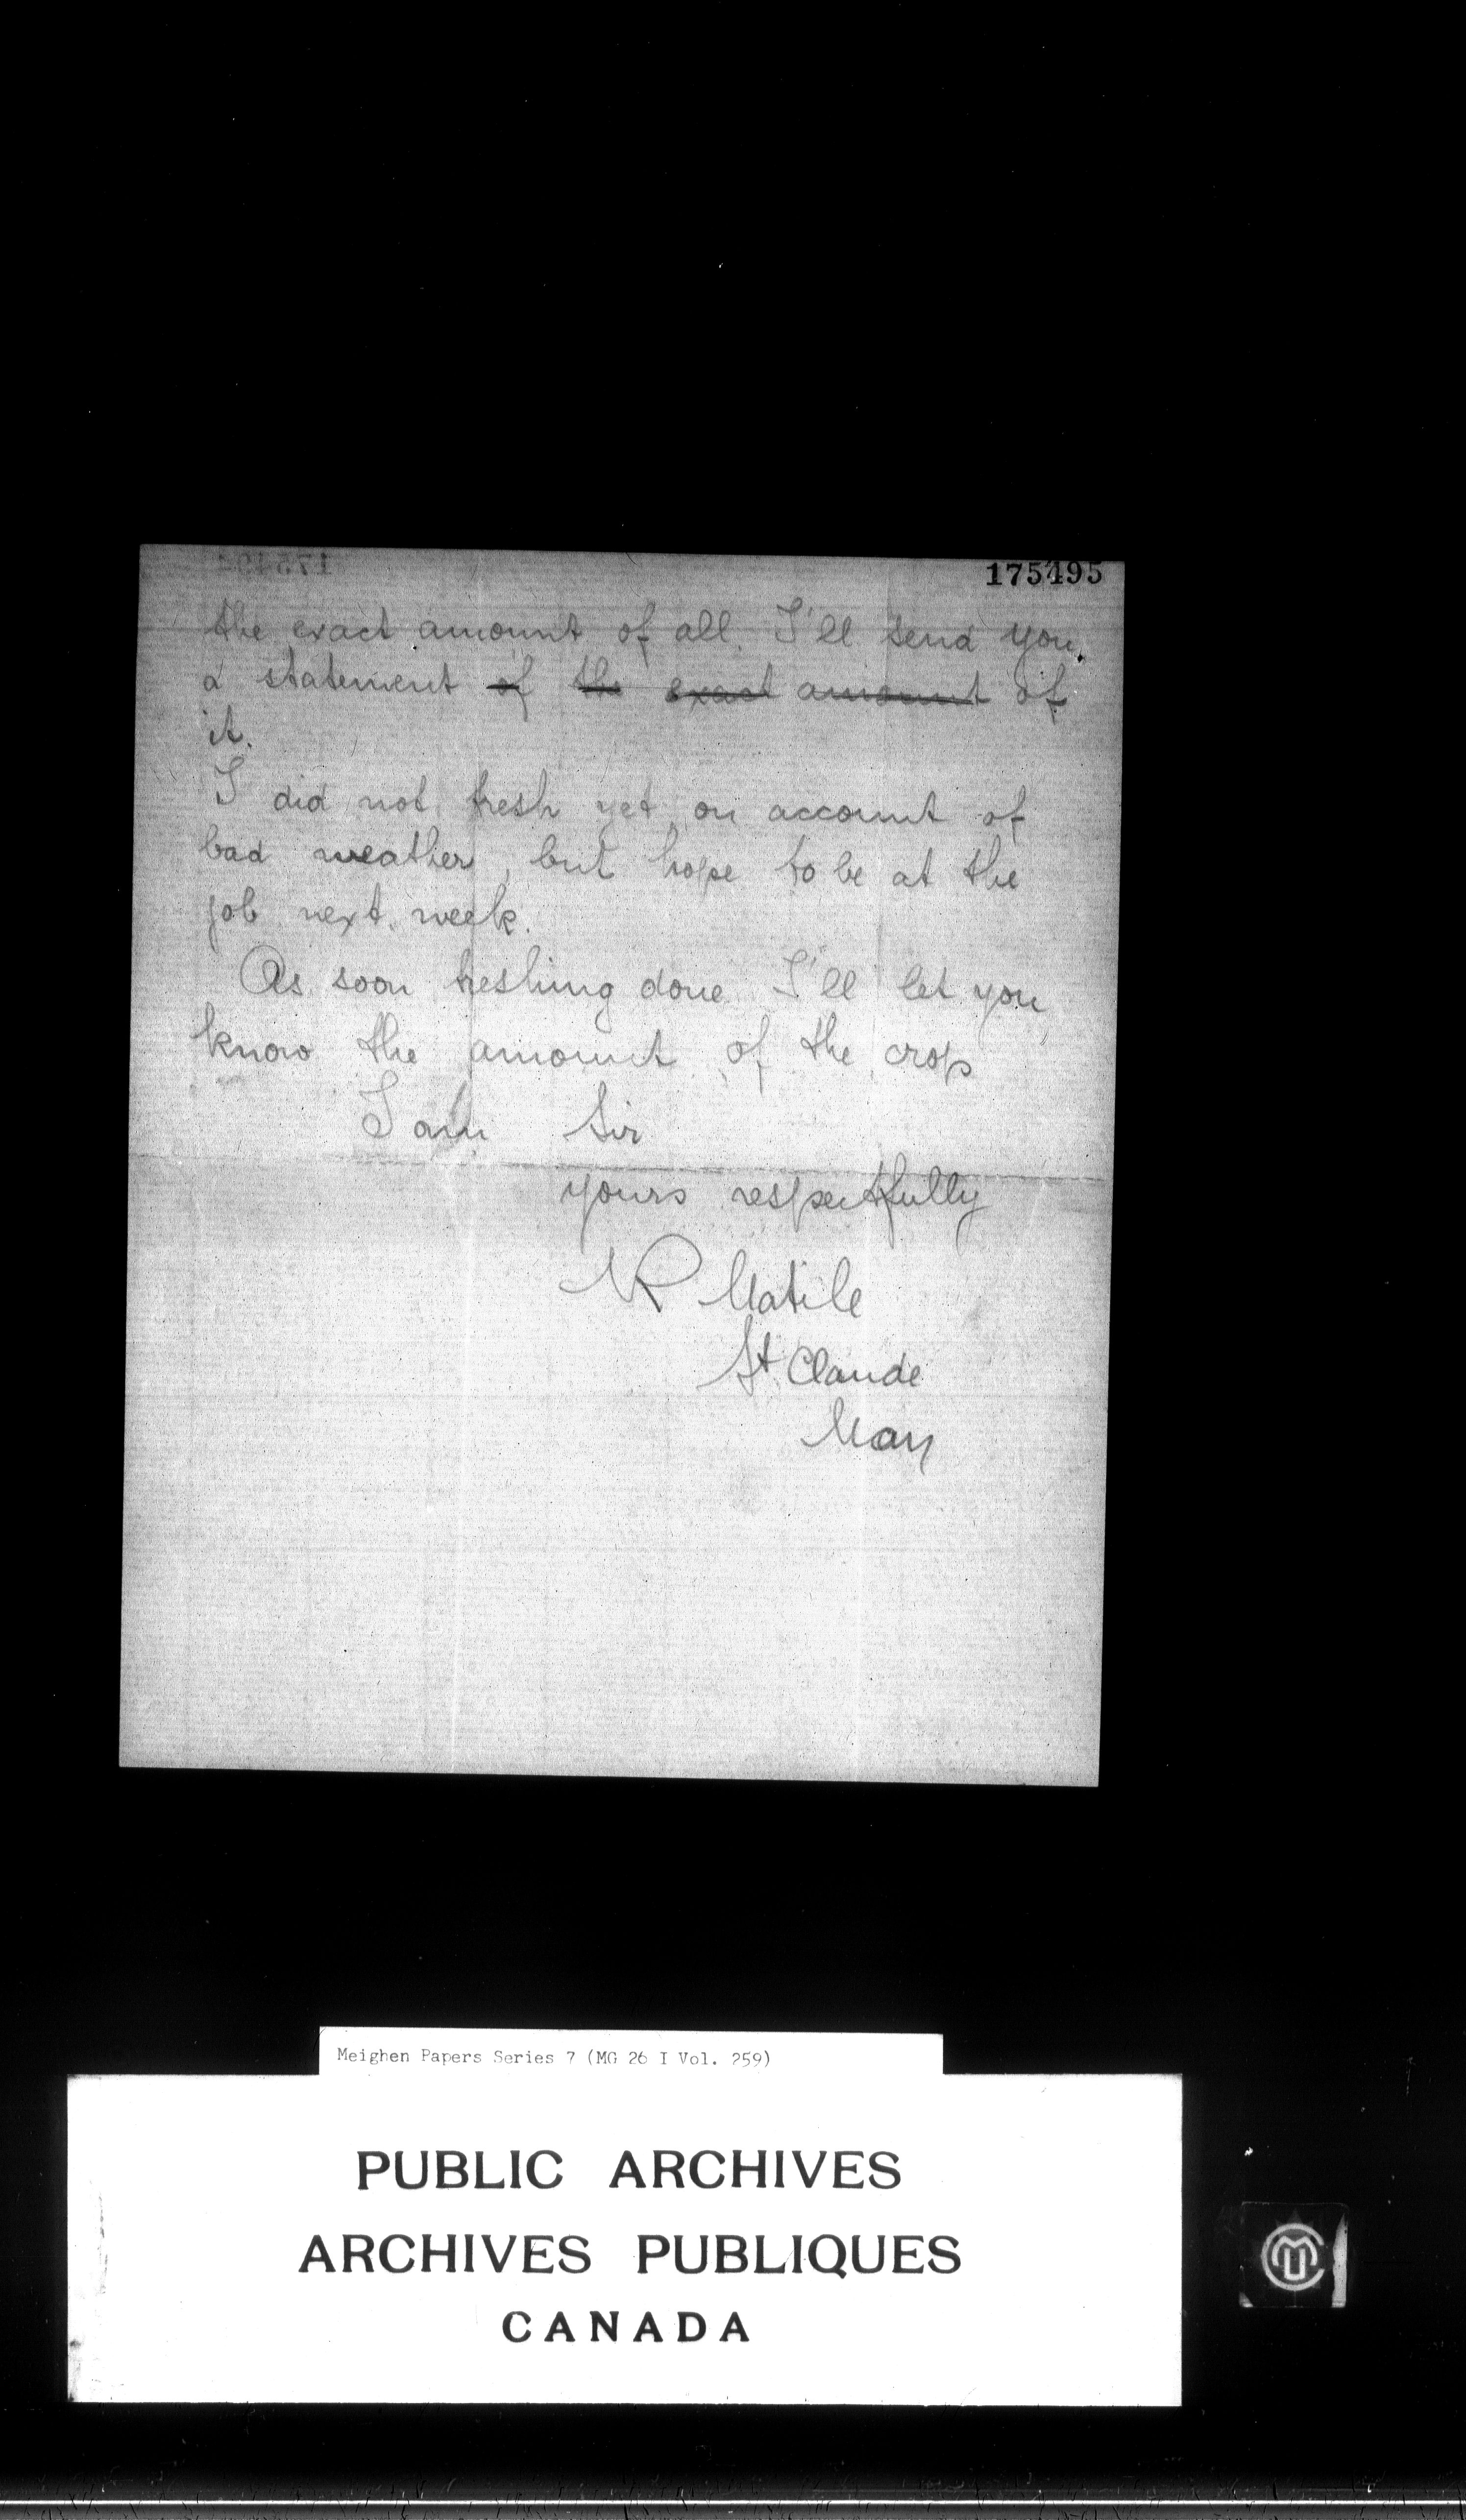 175495
the exact amount of all, I'll send you
a statement of the exact amount of
it.
I did not tresh yet on account of
bad weather, but hope to be at the
job next week.
As soon treshing done I'll let you
know the amount of the crop
I am Sir
yours respectfully
Matile
St Claude
Man
Meighen Papers Series 7 (MG 26 I Vol. 259)
PUBLIC ARCHIVES
ARCHIVES PUBLIQUES
CANADA